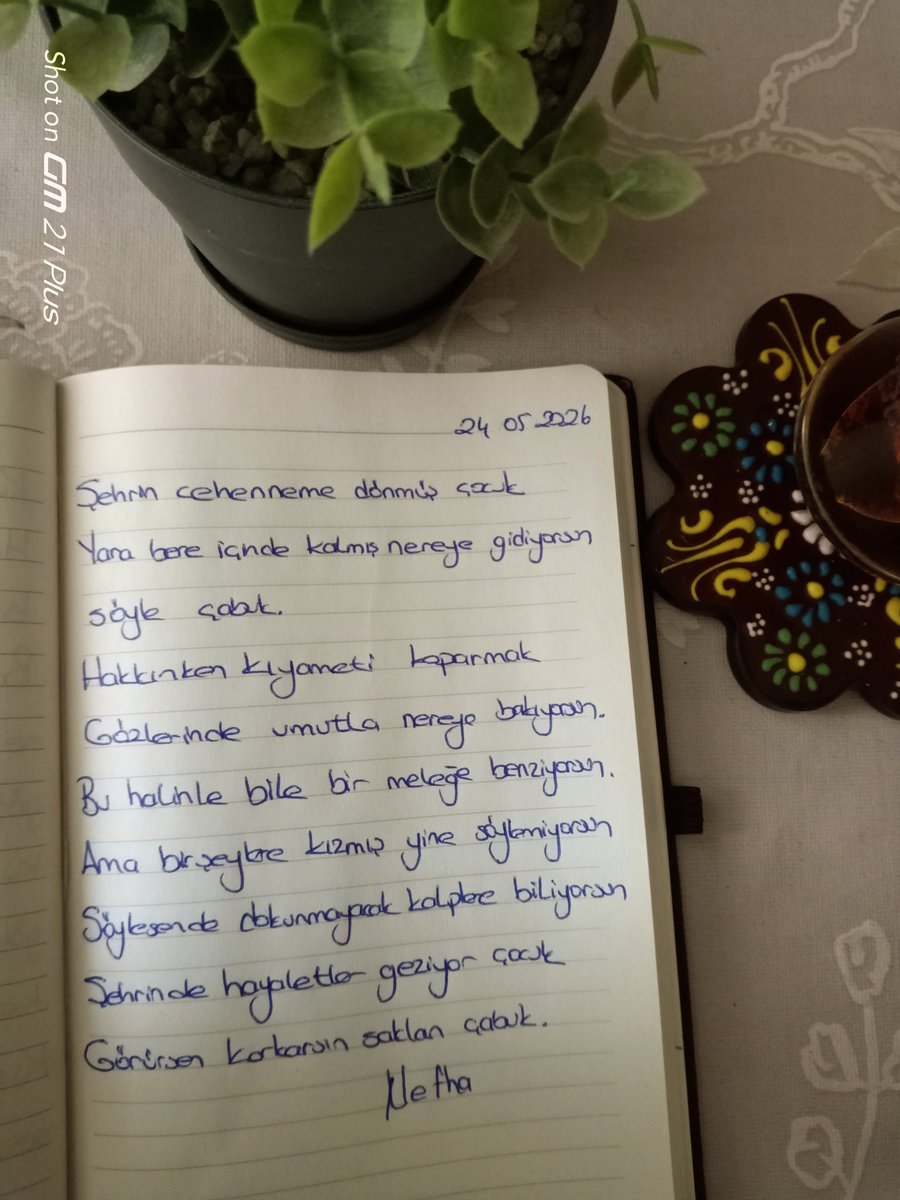 Shot on GM 21 Plus
24 05 2026
Şehrin cehenneme dönmüş çocuk
Yara bere içinde kalmış nereye gidiyorsun
söyle çabuk.
Hakkınken kıyameti koparmak
Gözlerinde umutla nereye bakıyorsun.
Bu halinle bile bir meleğe benziyorsun.
Ama birşeylere kızmış yine söylemiyorsun
Söylesende dokunmayacak kalplere biliyorsun
Şehrinde hayaletler geziyor çocuk
Görürsen korkarsın saklan çabuk.
Nefha